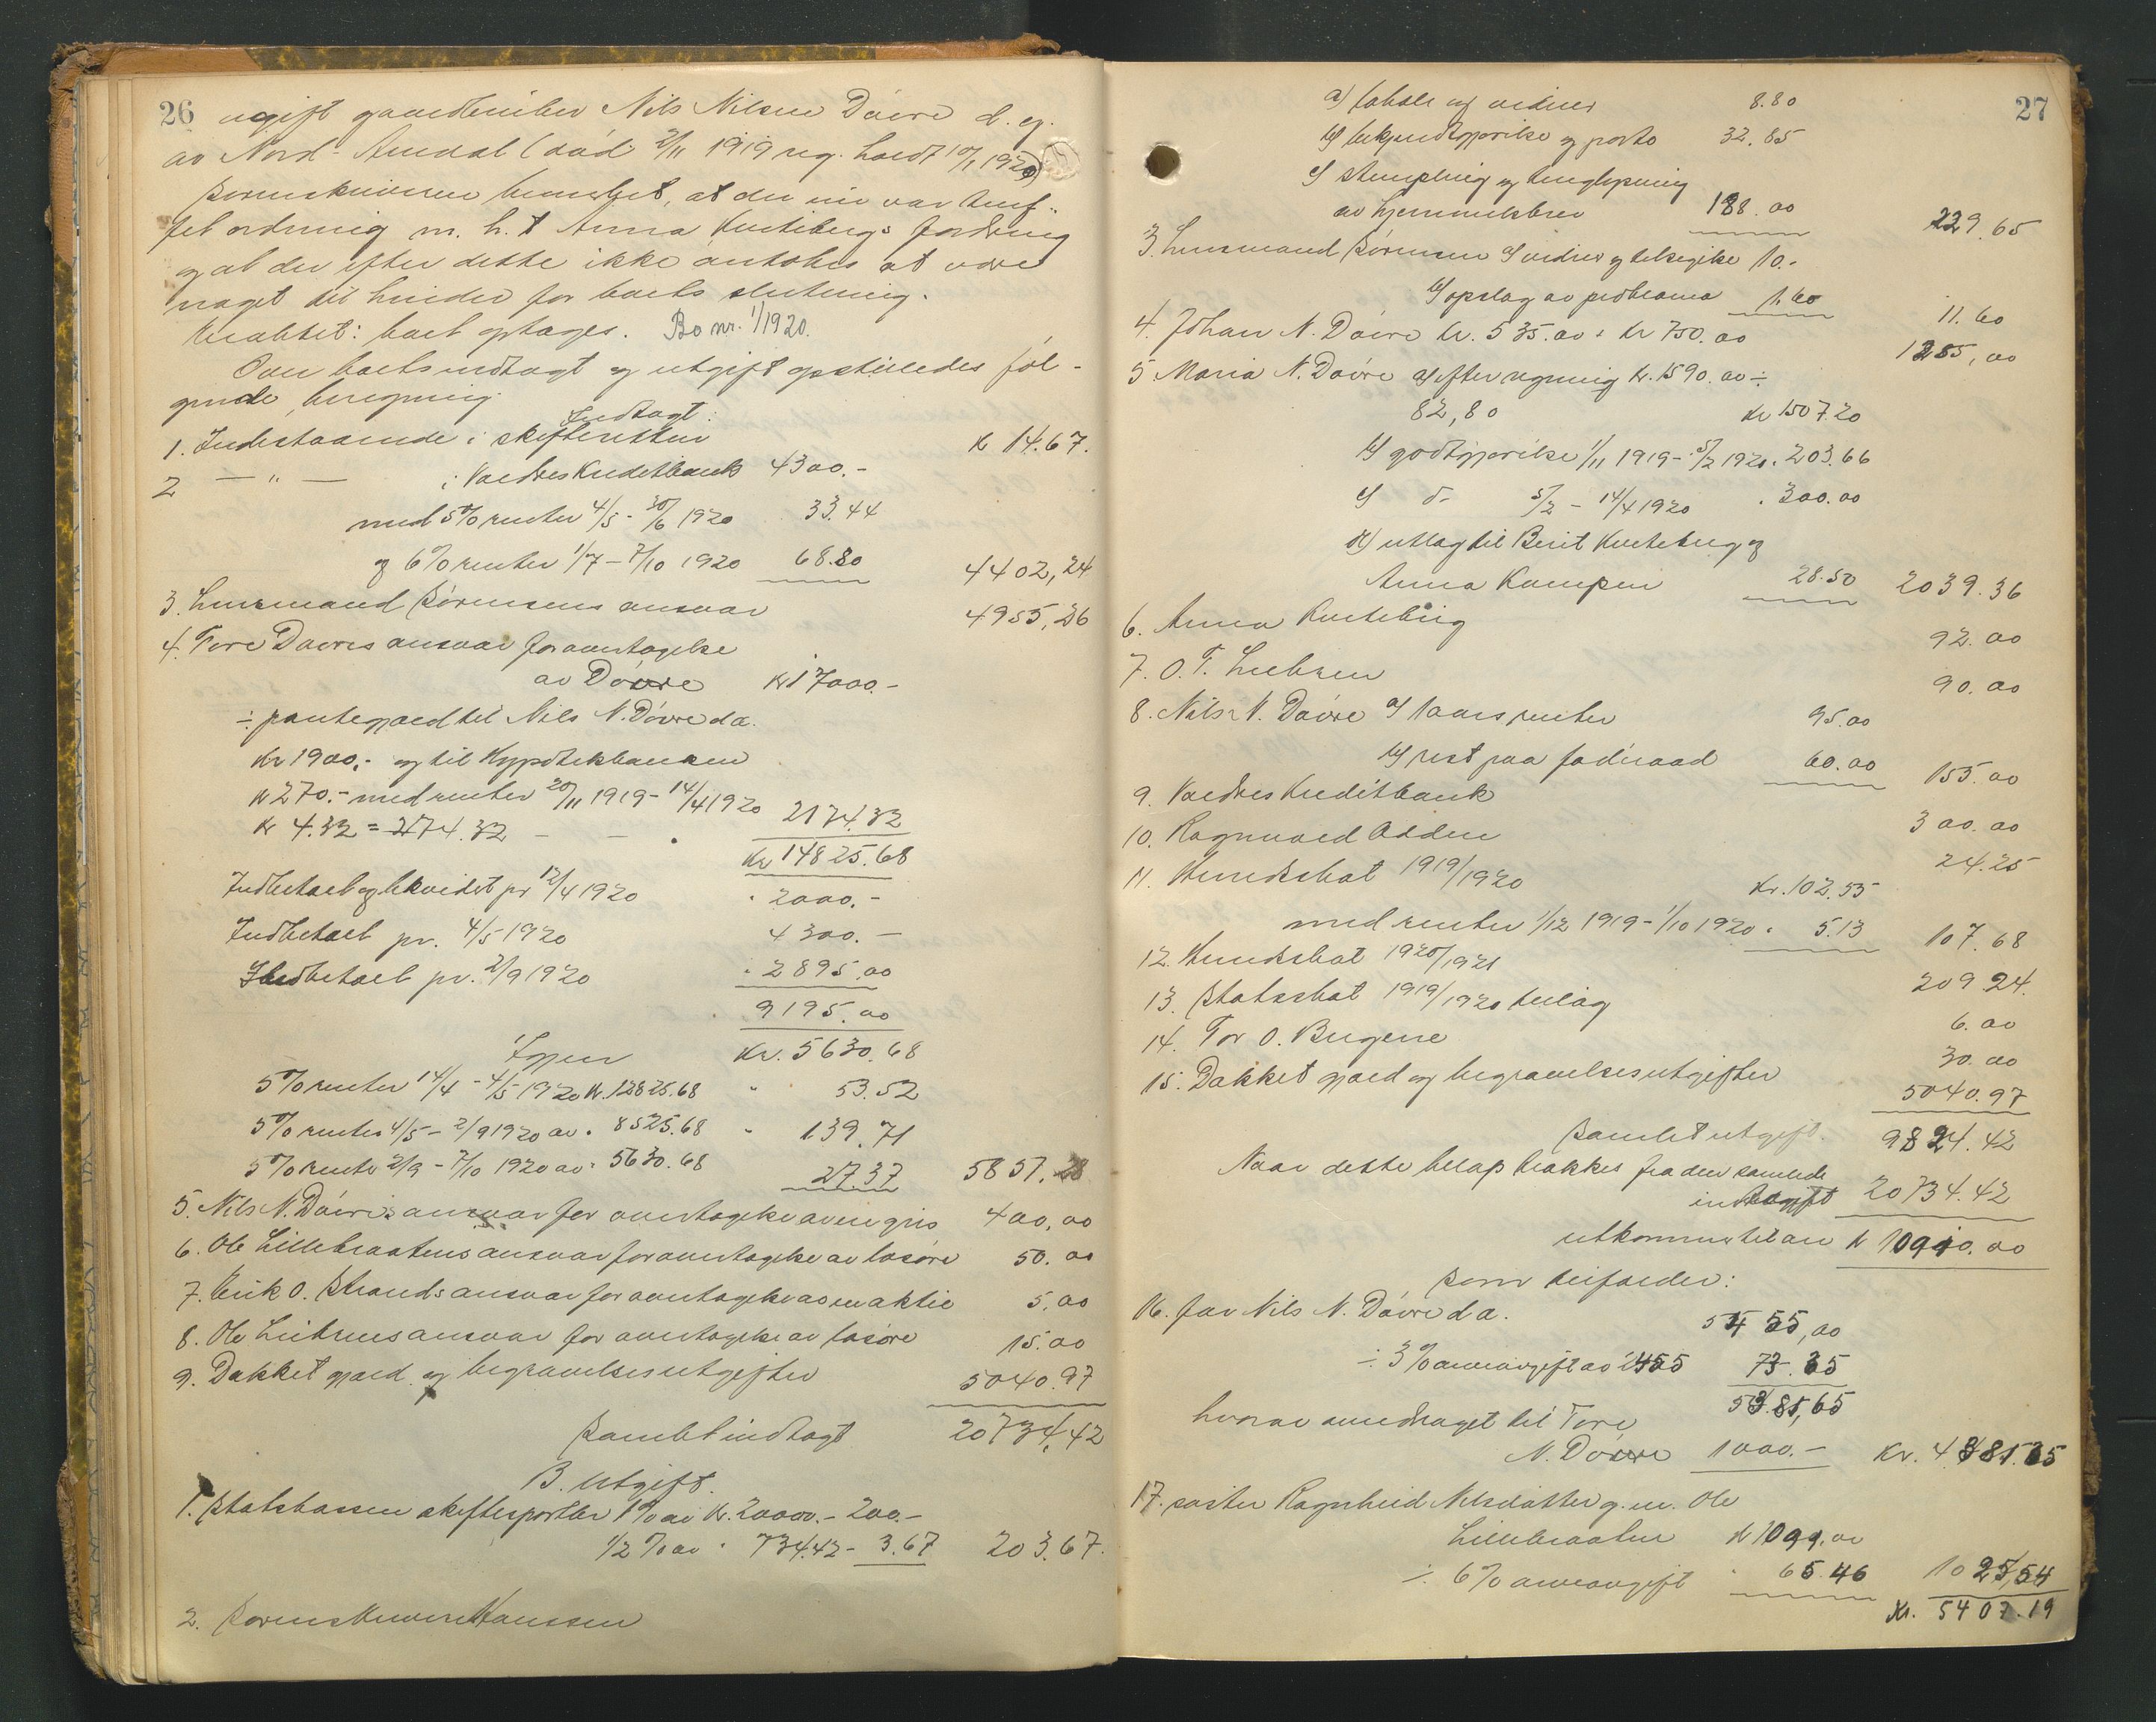 26
ugift gaardbruker Nils Nilsen Døvre d. y.
av Nord-Aurdal (død 2/11 1919 reg. holdt 10/1 1920)
Sorenskriveren bemerket, at der nu var truf-
fet ordning m. h. t. Anna Kvitebergs fordring
og at der efter dette ikke antokes at være
noget til hinder for boets slutning.
Resultat: boet optages. Bo nr. 1/1920.
Over boets indtægt og utgift opstilledes føl-
gende beregning
Indtægt:
1. Indestaaende i skifteretten kr 14.67.
2 — " — i Valdres Kreditbank 4300.-
med 5% renter 4/5 - 30/6 1920 33.44
og 6% renter 1/7 - 7/10 1920 68.80 4402,24
3. Lensmand Sørensens ansvar 4955,26
4. Tore Døvres ansvar for overtagelse
av Døvre kr 17000.-
÷ pantegjæld til Nils N. Døvre d.æ.
kr 1900.- og til Hypotekbanken
kr 270.- med renter 20/11 1919 - 14/4 1920
kr 4.32 = 2174.32 — — 2174.32
kr 14825.68
Indbetalt og likvidert pr 12/4 1920 " 2000.-
Indbetalt pr. 4/5 1920 4300.—
Indbetalt pr. 2/9 1920 " 2895.00
9195.00
Igjen kr. 5630.68
5% renter 14/4 - 4/5 1920 kr. 12825.68 " 53.52
5% renter 4/5 - 2/9 1920 av " 8525.68 " 139.71
5% rente 2/9 - 7/10 1920 av " 5630.68 27.37 5851.28
5. Nils N. Døvres ansvar for overtagelse av en gris 400,00
6. Ole Lillebraatens ansvar for overtagelse av løsøre 50.00
7. Erik O. Strands ansvar for overtagelse av en aktie 5,00
8. Ole ansvar for overtagelse av løsøre 15.00
9. Dækket gjæld og begravelsesutgifter 5040.97
Samlet indtægt 20734,42
B. Utgift.
1. Statskassen skifteportler 1% av kr. 20000.- 200.-
1/2 % av " 734.42 - 3.67 203.67.
2. Sorenskriver Hanssen
27
a) fohold og vidner 8.80
b) bekjendtgjørelse og porto 32.85
c) stempling og tinglysning
av hjemmelsbrev 188.00 229.65
3. Lensmand Sørensen a) vidner og tilsigelse 10.-
b) opslag av proklama 1.60 11.60
4. Johan N. Døvre kr. 535.00 + kr 750.00 1285,00
5 Maria N. Døvre a) efter regning kr. 1590.00 ÷
82,80 kr 1507.20
b) godtgjørelse 1/11 1919 - 5/2 1920 . 203.66
c) do 5/2 - 14/4 1920 . 300.00
d) utlæg til Berit Kviteberg og
Anna Kampen 28.50 2039.36
6. Anna Kviteberg 92.00
7. O. T. 90.00
8. Nils N. Døvre a) 1 aars renter 95.00
b) rest paa føderaad 60.00 155.00
9. Valdres Kreditbank 300.00
10. Ragnvald Odden 24.25
11. Herredskat 1919/1920 kr. 102.55
med renter 1/12 1919 - 1/10 1920 " 5.13 107.68
12. Herredskat 1920/1921 209 24.
13. Statsskat 1919/1920 tillæg 6.00
14. Tor O. 30.00
15. Dækket gjæld og begravelsesutgifter 5040.97
Samlet utgift. 9824.42
Naar dette beløp trækkes fra den samlede
indtægt 20734.42
utkommer til arv kr 10910.00
Som tilfalder:
16. far Nils N. Døvre d.æ. 5455,00
÷ 3% arveavgift av 2455 73.35
5381,65
hvorav overdraget til Tore
N. Døvre 1000.— Kr. 4381.65
17. søster Ragnhild Nilsdatter g. m. Ole
Lillebraaten kr 1091.00
÷ 6% arveavgift " 65.46 1025,54
Kr. 5407.19